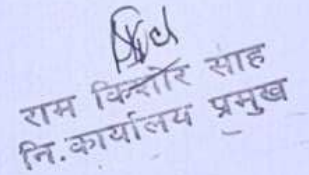 राम किशोर साह
नि.कार्यालय प्रमुख